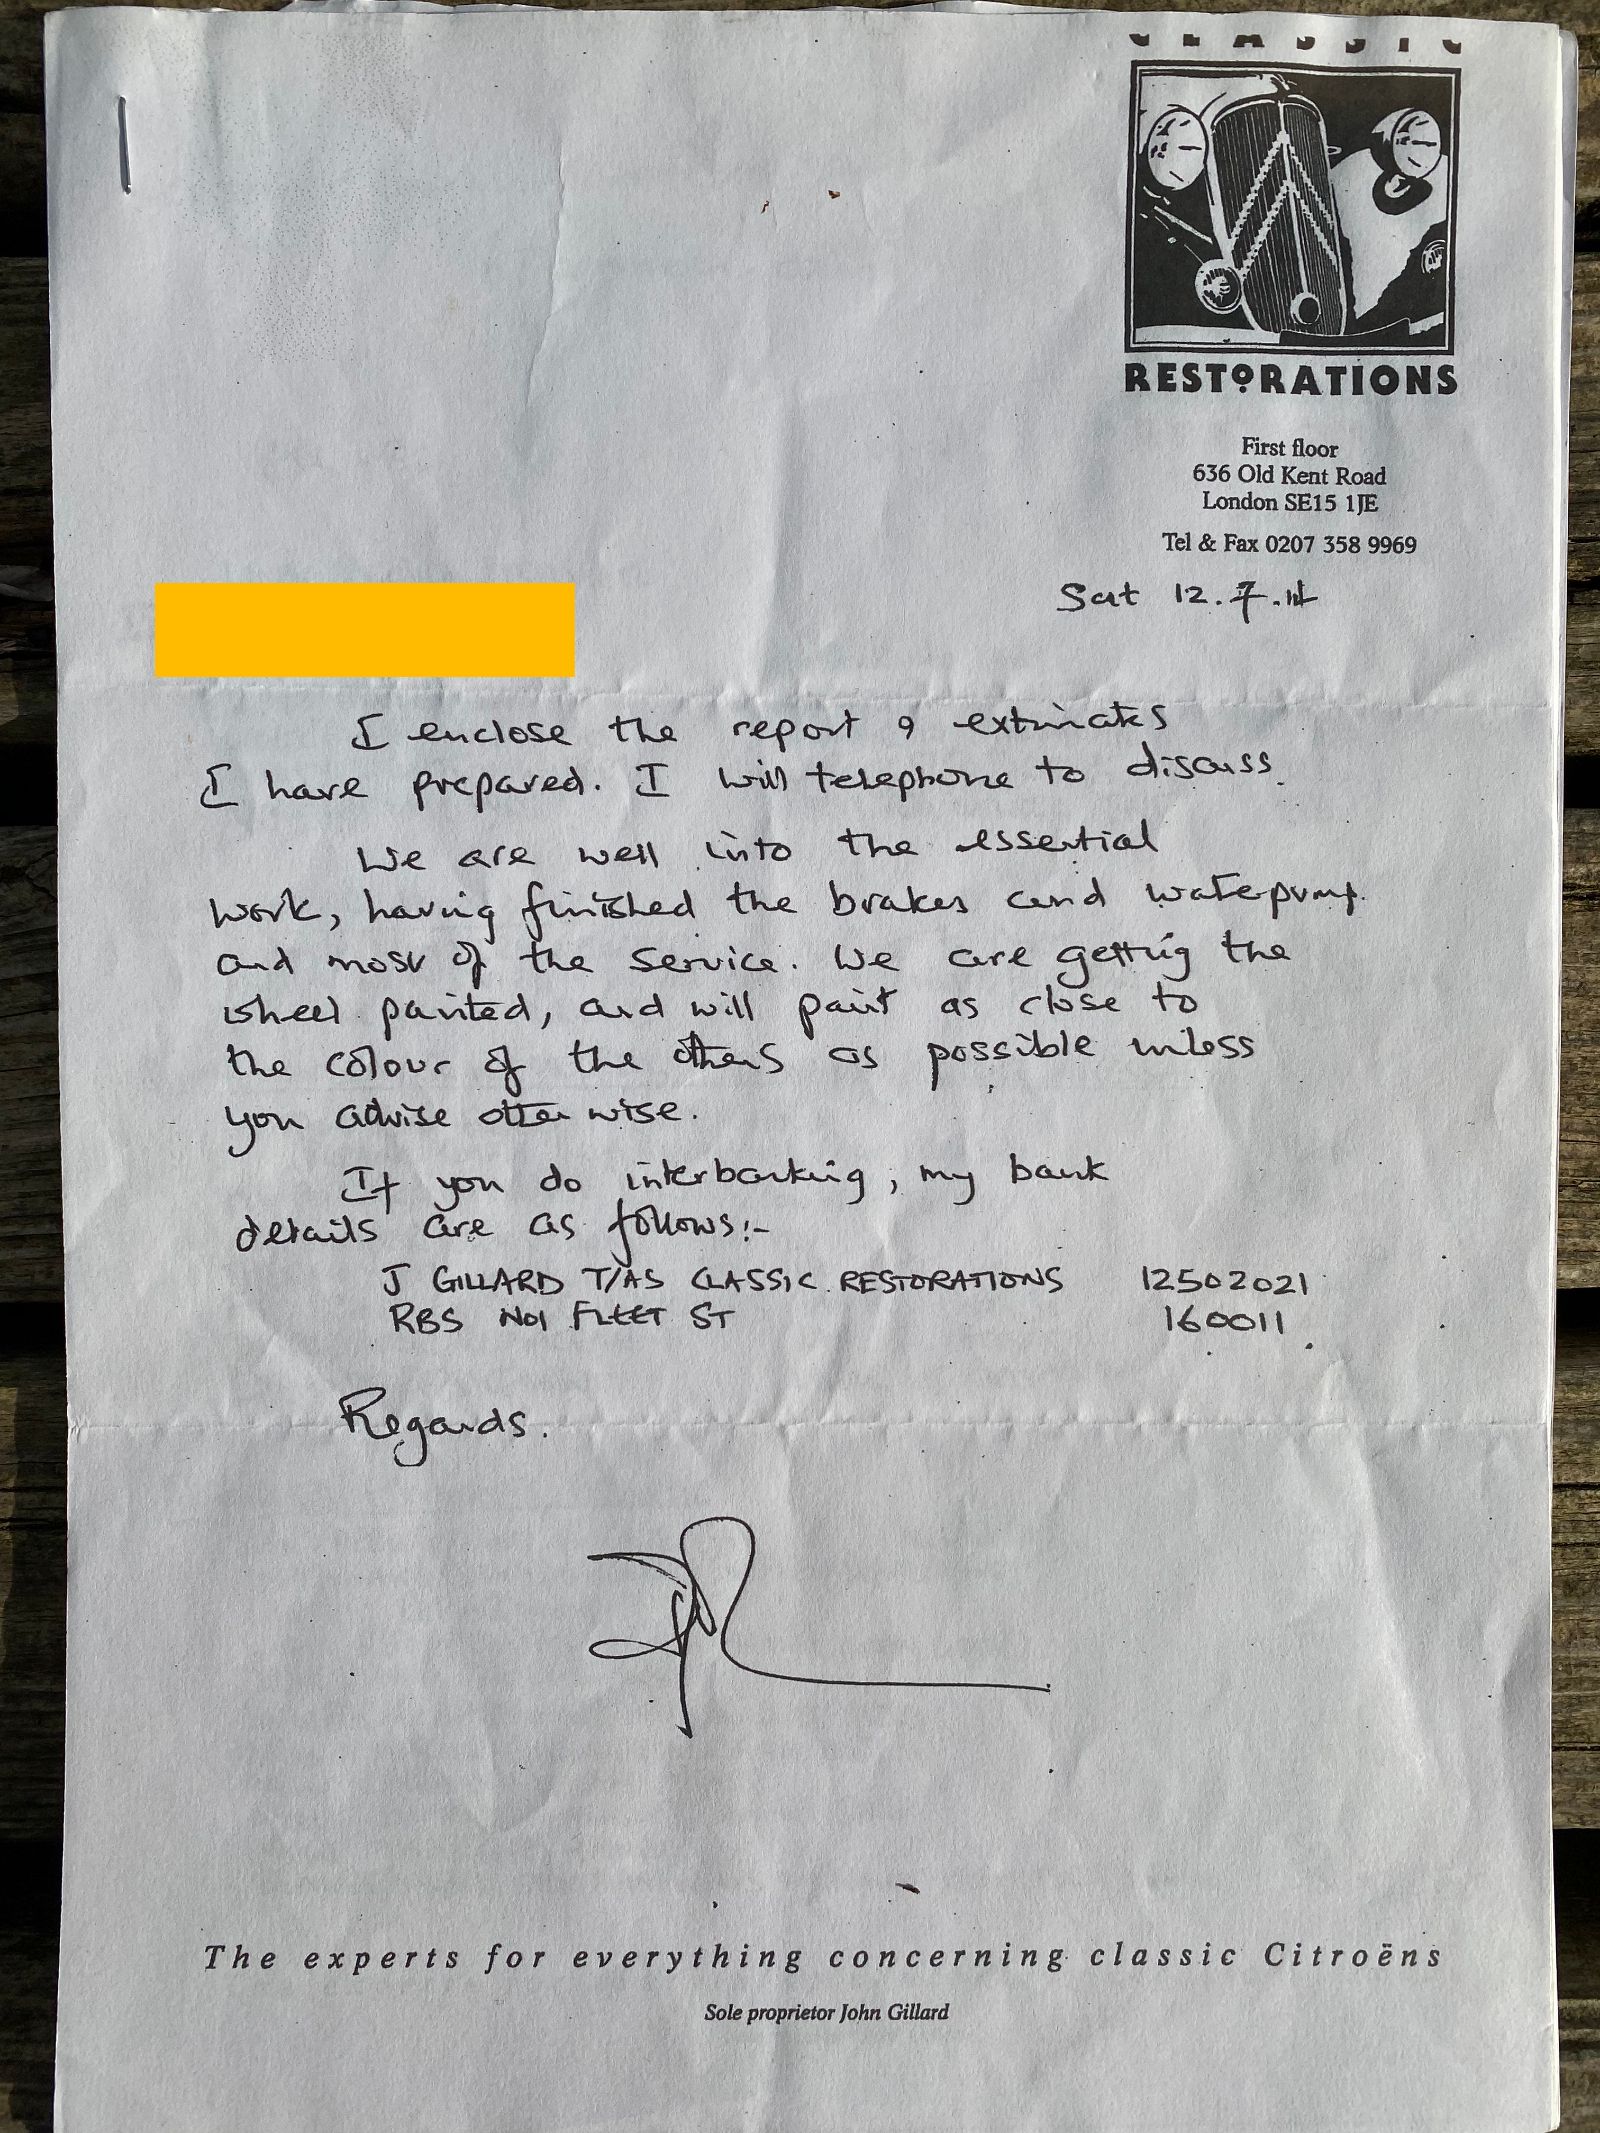 CLASSIC
RESTORATIONS
First floor
636 Old Kent Road
London SE15 1JE
Tel & Fax 0207 358 9969
Sat 12.7.14
I enclose the report & extimates
I have prepared. I will telephone to discuss.
We are well into the essential
work, having finished the brakes and waterpump.
and most of the service. We are getting the
wheel painted, and will paint as close to
the colour of the others as possible unless
you advise otherwise.
If you do interbanking, my bank
details are as follows:-
J GILLARD T/AS CLASSIC RESTORATIONS 12502021
RBS No1 FLEET ST 160011
Regards.
The experts for everything concerning classic Citroëns
Sole proprietor John Gillard